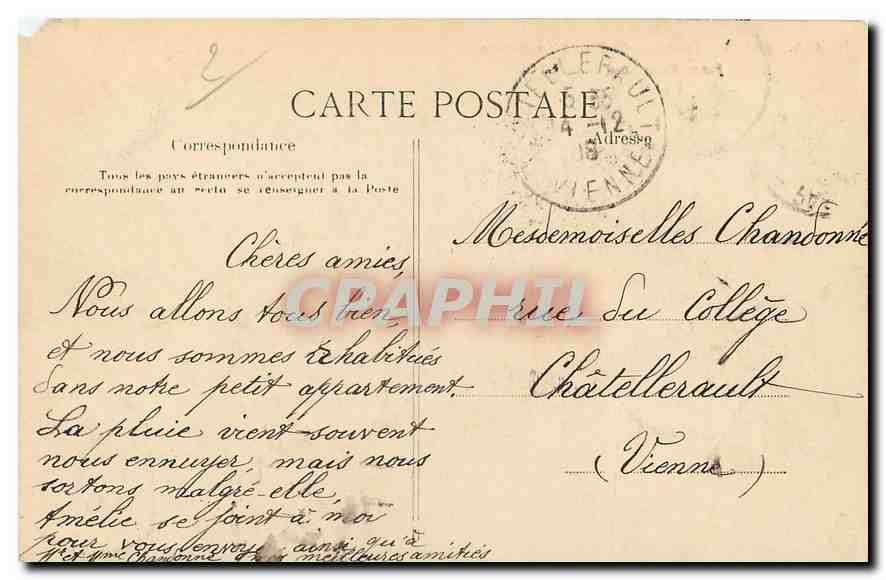 2
CARTE POSTALE
Correspondance
Tous les pays étrangers n'acceptent pas la
correspondance au recto se renseigner à la Poste
Chères amies,
Nous allons tous bien,
et nous sommes habitués
dans notre petit appartement.
La pluie vient souvent
nous ennuyer, mais nous
sortons malgré elle,
Amélie se joint à moi
pour vous envoyer ainsi qu'à
Mr et Mme Chandonné meilleures amitiés
CHATELLERAULT
4 -12
VIENNE
Adresse
Mesdemoiselles Chandonné
rue du Collège
Châtellerault
(Vienne)
CRAPHIL